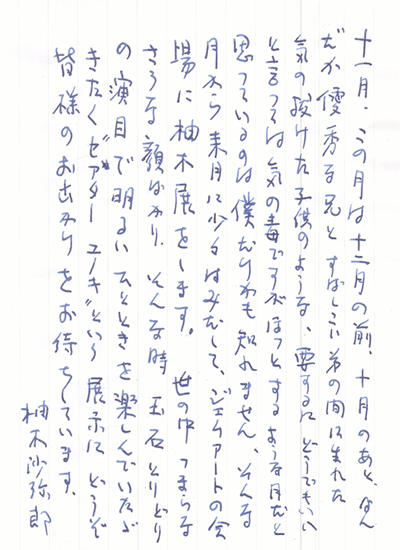 十一月. この月は十二月の前、十月のあと、なん
だか優秀な兄と すばしこい弟の間に生れた
気の抜けた子供のような、要するに どうでもいい
と言っては 気の毒ですがほっとする ような月だと
思っているのは僕だけかも知れません、そんな
月から来月に少々はみだして、ジェクアートの会
場に柚木展をします。 世の中 つまらな
そうな顔ばかり、そんな時 玉石とりどり
の演目で明るいひとときを楽しんでいただ
きたく“ゼアター ユノキ”という展示に どうぞ
皆様のお出かりをお待ちしています.
柚木沙弥郎